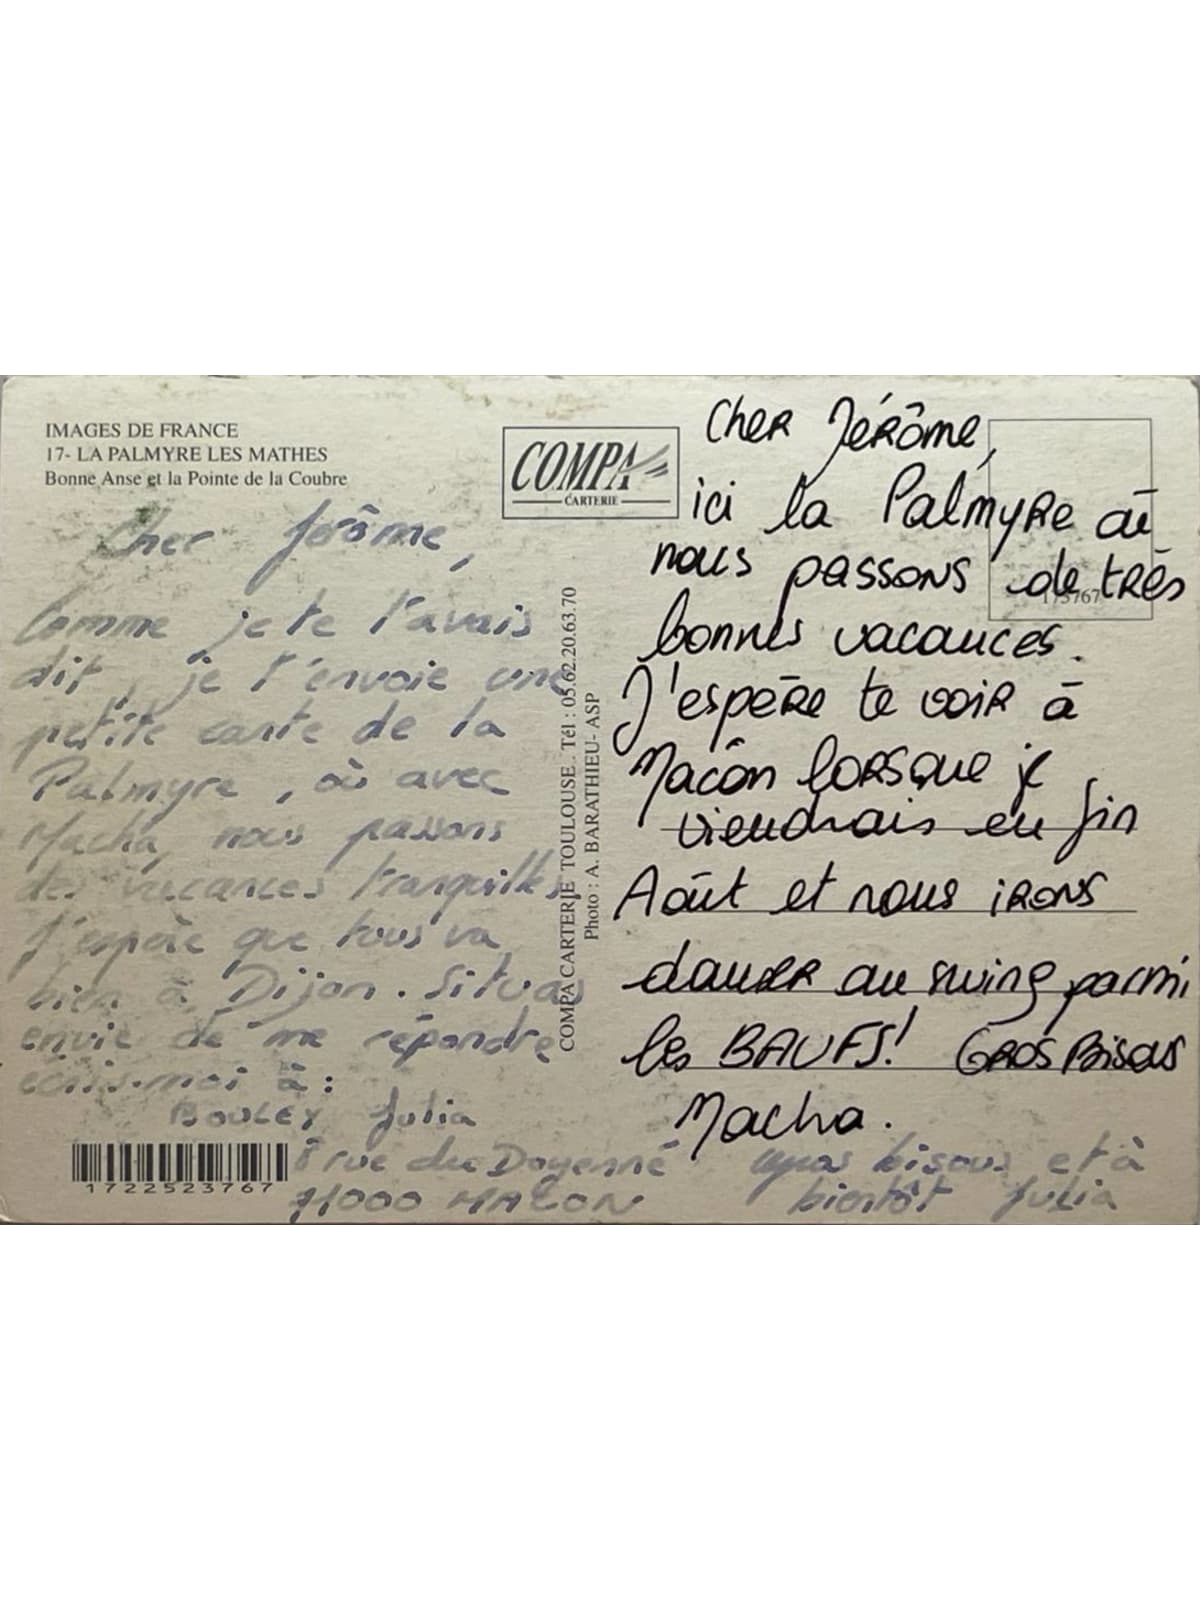 IMAGES DE FRANCE
17- LA PALMYRE LES MATHES
Bonne Anse et la Pointe de la Coubre
COMPA
CARTERIE
Cher Jérôme,
Comme je te l'avais
dit, je t'envoie une
petite carte de la
Palmyre, où avec
Macha, nous passons
des vacances tranquilles
J'espère que tous va
bien à Dijon. Si tu as
envie de me répondre
écris-moi à :
BOULEY Julia
8 rue du Doyenné
71000 MACON
1722523767
COMPA CARTERIE TOULOUSE. Tél : 05.62.20.63.70
Photo : A. BARATHIEU- ASP
173767
Cher Jérôme,
ici la Palmyre où
nous passons de très
bonnes vacances.
J'espère te voir à
Macôn lorsque je
viendrais en fin
Août et nous irons
danser au swing parmi
les BAUFS! GROS Bisous
Macha.
gros bisous et à
bientôt Julia